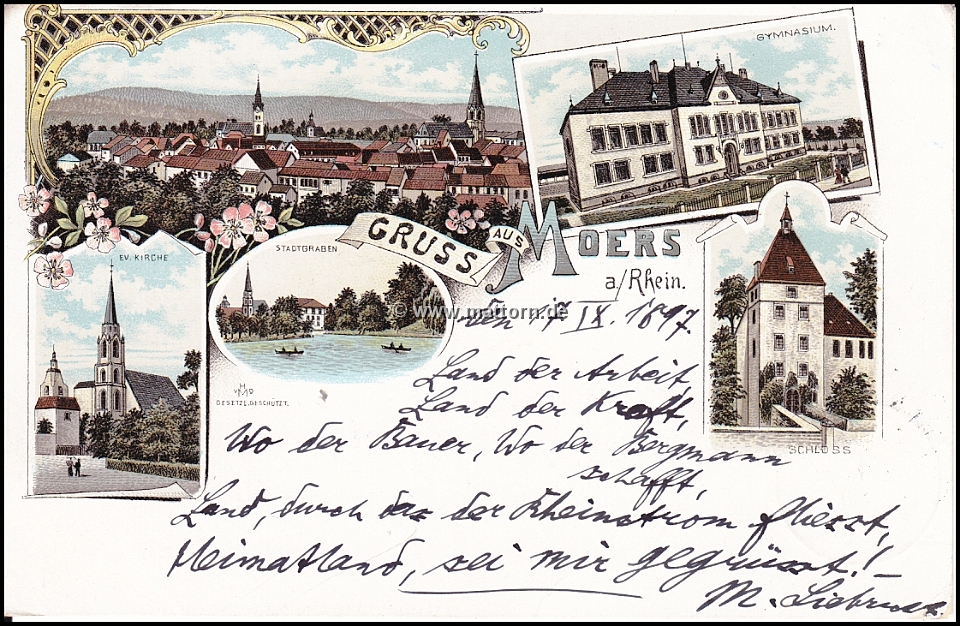 GYMNASIUM.
GRUSS AUS MOERS
a/Rhein.
EV. KIRCHE
STADTGRABEN
© www.mattorn.de
den 17 IX. 1897.
GESETZL. GESCHÜTZT.
SCHLOSS
Land der Arbeit,
Land der Kraft,
Wo der Bauer, Wo der Bergmann
schafft,
Land, durch das der Rheinstrom fliesst,
Heimatland, sei mir gegrüsst!–
M.